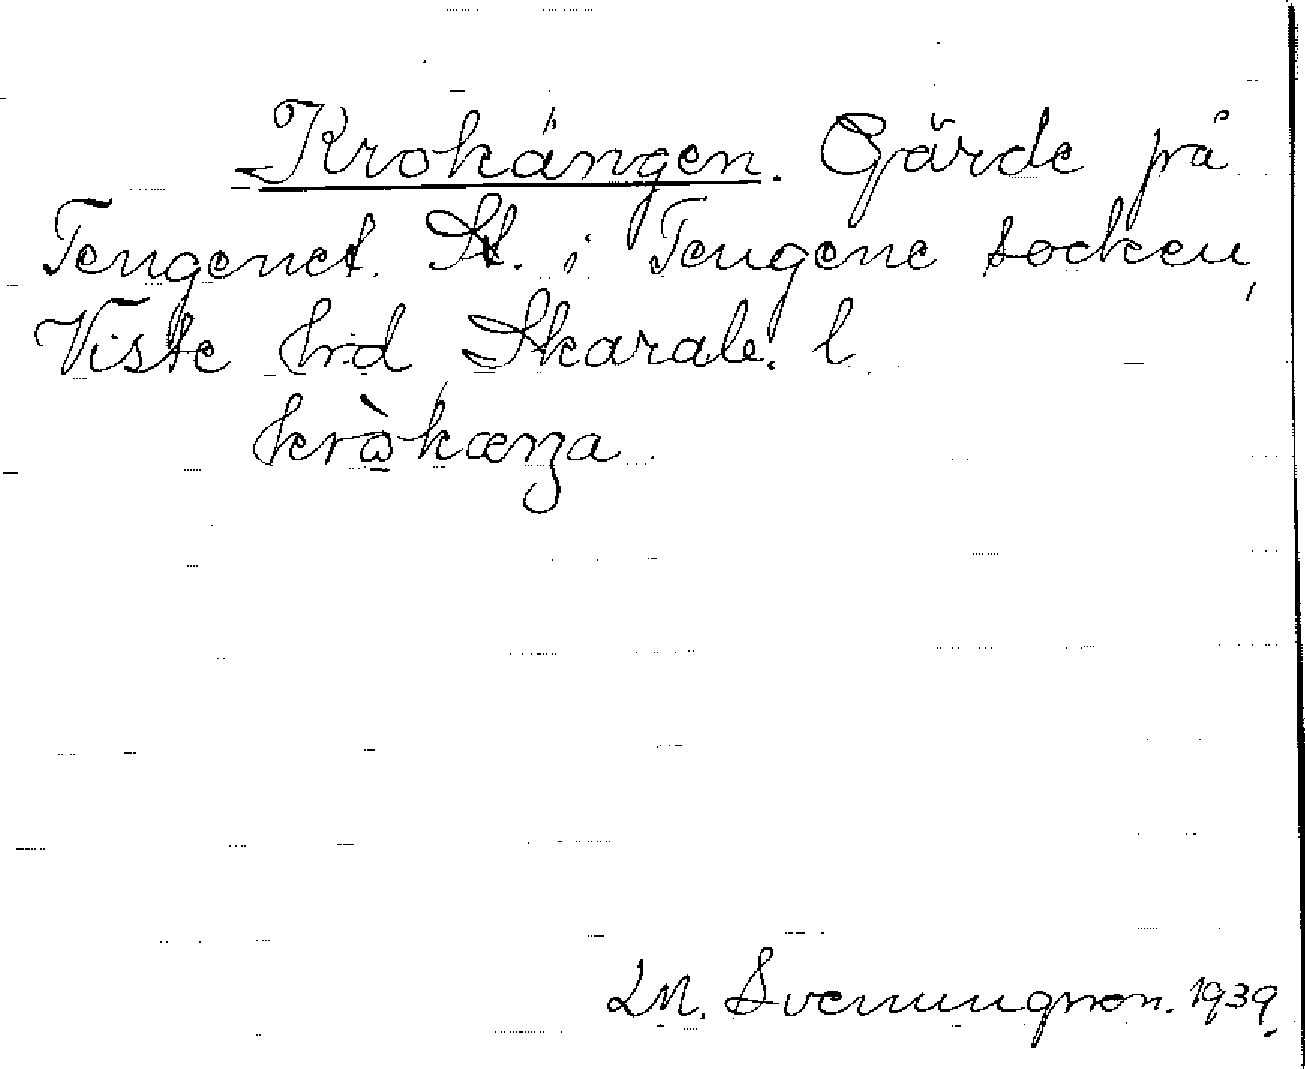 Krokängen. Gärde på
Tengenet. St. i Tengene socken,
Viste hrd Skarab. l
kròkænza.
LM. Svenungsson. 1939.